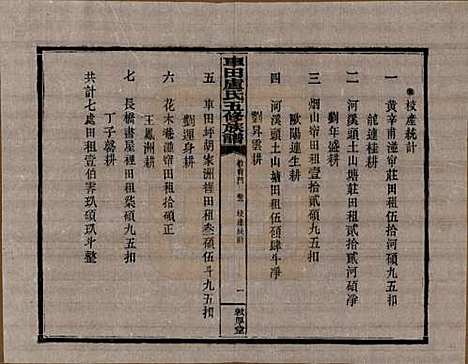 校産統計
一 黄辛甫灌嶺莊田租河碩九五扣
龍連桂耕
二 河溪頭土山塘莊田租拾貳河碩净
劉年盛耕
三 烟山嶺田租壹拾貳碩九五扣
歐陽連生耕
四 河溪頭土山塘田租伍碩肆斗净
劉昇雲耕
車田盧氏五修族譜
校産統計
一
敦厚堂
五 車田坪胡家洲田租叁碩伍斗九五扣
劉運身耕
六 花木巷灌嶺田租拾碩正
王鳳洲耕
七 長橋書屋裡田租柒碩九五扣
丁子薵耕
共計七處田租壹伯零玖碩玖斗整